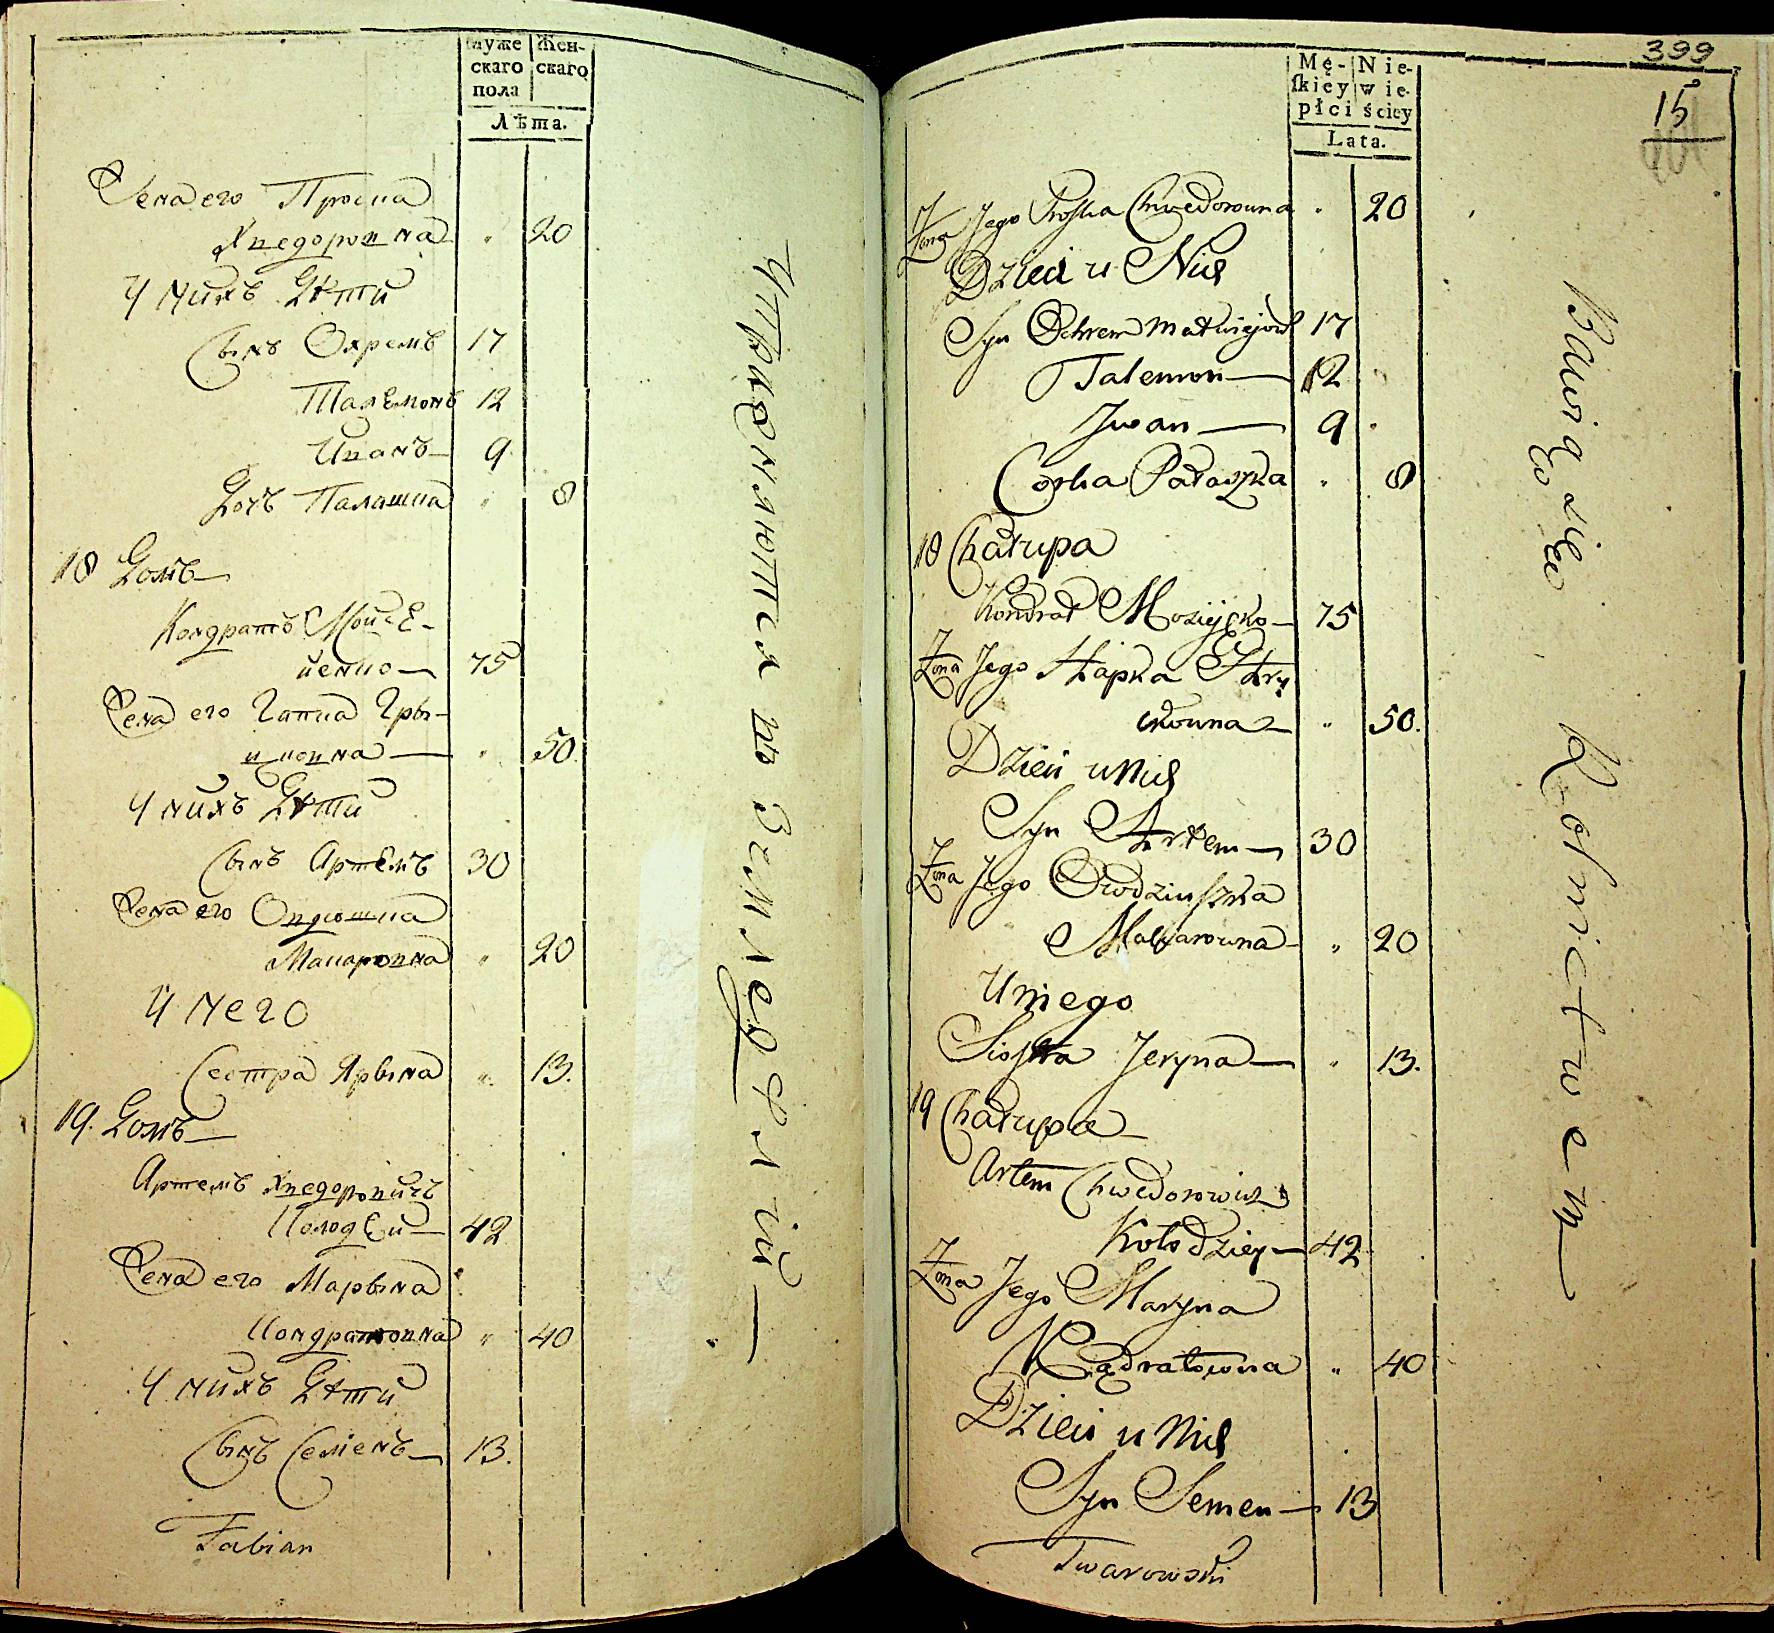 муже
скаго
пола
Жен-
скаго
Лѣта.
Жена его Проска
Хведоровна " 20
У нихъ Дѣти
Сынъ Охремъ 17
Талемонъ 12
Иванъ 9
Дочъ Палашка " 8
18 Домъ
Кондратъ Мойсе-
йенко 75
Жена его Гапка Гры-
цковна " 50.
У нихъ Дѣти
Сынъ Артемъ 30
Жена его Овдюшка
Макаровна " 20
У него
Сестра Ярына " 13.
19. Домъ
Артемъ Хведоровичъ
Колодѣй 42
Жена его Марына
Кондратовна " 40
У нихъ Дѣти
Сынъ Семенъ 13.
Fabian
Упражняются въ Земледѣлїй
399
15
Mę-
skiey
płci
Nie-
wie-
ściey
Lata.
Żona Jego Proska Chwedorowna " 20
Dzieci u Nich
Syn Ochrem Matwiejow 17
Talemon 12
Jwan 9
Corka Pałaszka " 8
18 Chałupa
Kondrat Mozijęko 75
Żona Jego Hapka Hry
ckowna " 50.
Dzieci u Nich
Syn Artem 30
Żona Jego Owdziuszka
Makarowna " 20
U niego
Siostra Jeryna " 13.
19 Chałupa
Artem Chwedorowicz
Kołodziey 42
Żona Jego Maryna
Kądratowna " 40
Dzieci u Nich
Syn Semen 13
Twarowski
Bawią się
Rolnictwem